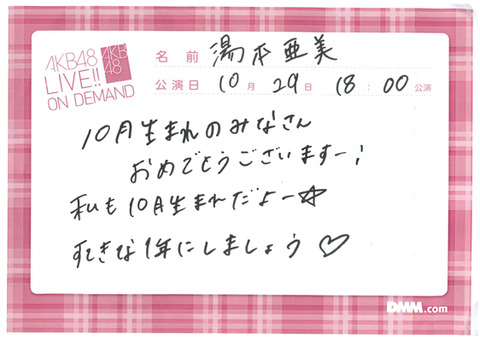 AKB48
LIVE!!
ON DEMAND
AKB
48
名前 湯本亜美
公演日 10月29日 18:00公演
10月生まれのみなさん
おめでとうございますー!
私も10月生まれだよー☆
すてきな1年にしましょう♡
DMM.com